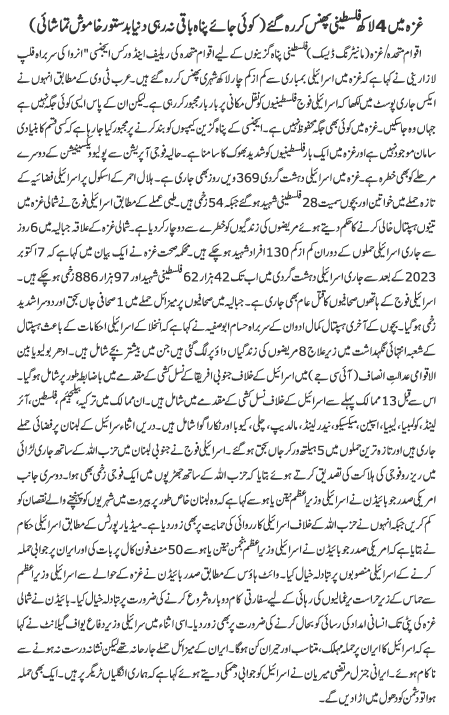 غزہ میں 4 لاکھ فلسطینی پھنس کر رہ گئے (کوئی جائے پناہ باقی نہ رہی دنیا بدستور خاموش تماشائی)
اقوام متحدہ / غزہ (مانیٹرنگ ڈیسک) فلسطینی پناہ گزینوں کے لیے اقوام متحدہ کی ریلیف اینڈ ورکس ایجنسی "انروا کی سربراہ فلپ
لازارینی نے کہا ہے کہ غزہ میں اسرائیلی بمباری سے کم از کم چار لاکھ شہری پھنس کر رہ گئے ہیں۔ عرب ٹی وی کے مطابق انہوں نے
ایکس جاری پوسٹ میں لکھا کہ اسرائیلی فوج فلسطینیوں کو نقل مکانی پر بار بار مجبور کر رہی ہے۔ لیکن ان کے پاس ایسی کوئی جگہ نہیں ہے
جہاں وہ جا سکیں۔ غزہ میں کوئی بھی جگہ محفوظ نہیں ہے۔ ایجنسی کے پناہ گزین کیمپوں کو بند کرنے پر مجبور کیا جا رہا ہے کہ کسی قسم کا بنیادی
سامان موجود نہیں ہے اور غزہ میں ایک بار فلسطینیوں کو شدید بھوک کا سامنا ہے۔ حالیہ فوجی آپریشن سے پولیو ویکسینیشن کے دوسرے
مرحلے کو بھی خطرہ ہے۔ غزہ میں اسرائیلی دہشت گردی 369 ویں روز بھی جاری ہے۔ ہلال احمر کے اسکول پر اسرائیلی فضائیہ کے
تازہ حملے میں خواتین اور بچوں سمیت 28 فلسطینی شہید ہو گئے جبکہ 54 زخمی ہیں۔ طبی عملے کے مطابق اسرائیلی فوج نے شمالی غزہ میں
تینوں ہسپتال خالی کرنے کا حکم دیتے ہوئے مریضوں کی زندگیوں کو خطرے سے دوچار کر دیا ہے۔ شمالی غزہ کے علاقہ جبالیہ میں 6 روز
سے جاری اسرائیلی حملوں کے دوران کم از کم 130 افراد شہید ہو چکے ہیں۔ محکمہ صحت غزہ نے ایک بیان میں کہا ہے کہ 7 اکتوبر
2023 کے بعد سے جاری اسرائیلی دہشت گردی میں اب تک 42 ہزار 62 فلسطینی شہید اور 97 ہزار 886 زخمی ہو چکے ہیں۔
اسرائیلی فوج کے ہاتھوں صحافیوں کا قتل عام بھی جاری ہے۔ جبالیہ میں صحافیوں پر میزائل حملے میں 1 صحافی جاں بحق اور دوسرا شدید
زخمی ہو گیا۔ بچوں کے آخری ہسپتال کمال ادوان کے سربراہ حسام ابو صفیہ نے کہا ہے کہ انخلا کے اسرائیلی احکامات کے باعث ہسپتال
کے شعبہ انتہائی نگہداشت میں زیر علاج 8 مریضوں کی زندگیاں داؤ پر لگ گئی ہیں جن میں بیشتر بچے شامل ہیں۔ ادھر بولیویا بین
الاقوامی عدالت انصاف (آئی سی جے) میں اسرائیل کے خلاف جنوبی افریقا کے نسل کشی کے مقدمے میں باضابطہ طور پر شامل ہو گیا۔
اس سے قبل 13 ممالک پہلے سے اسرائیل کے خلاف نسل کشی کے مقدمے میں شامل ہیں۔ ان ممالک میں ترکیہ، بیلجیئم، فلسطین، آئر
لینڈ، کولمبیا، لیبیا، اسپین، میکسیکو، نیدر لینڈ، مالدیپ، چلی، کیوبا اور نکاراگوا شامل ہیں۔ دریں اثناء اسرائیل کے لبنان پر فضائی حملے
جاری ہیں اور تازہ ترین حملوں میں 5 ہیلتھ ورکر جاں بحق ہو گئے۔ اسرائیلی فوج نے جنوبی لبنان میں حزب اللہ کے ساتھ جاری لڑائی
میں ریزرو فوجی کی ہلاکت کی تصدیق کرتے ہوئے بتایا کہ حزب اللہ کے ساتھ جھڑپوں میں ایک فوجی زخمی بھی ہوا۔ دوسری جانب
امریکی صدر جو بائیڈن نے اسرائیلی وزیر اعظم نیتن یاہو سے کہا ہے کہ وہ لبنان خاص طور پر بیروت میں شہریوں کو پہنچنے والے نقصان کو
کم کریں جبکہ انہوں نے حزب اللہ کے خلاف اسرائیلی کارروائی کی حمایت پر بھی زور دیا ہے۔ میڈیا رپورٹس کے مطابق اسرائیلی حکام
نے بتایا ہے کہ امریکی صدر جو بائیڈن نے اسرائیلی وزیراعظم بنجمن نیتن یاہو سے 50 منٹ فون کال پر بات کی اور ایران پر جوابی حملہ
کرنے کے اسرائیلی منصوبوں پر تبادلہ خیال کیا۔ وائٹ ہاؤس کے مطابق صدر بائیڈن نے غزہ کے حوالے سے اسرائیلی وزیراعظم
سے حماس کے زیر حراست یرغمالیوں کی رہائی کے لیے سفارتی کام دوبارہ شروع کرنے کی ضرورت پر تبادلہ خیال کیا۔ انہوں نے شمالی
غزہ کی پٹی تک انسانی امداد کی رسائی کو بحال کرنے کی ضرورت پر بھی زور دیا۔ اسی اثناء میں اسرائیلی وزیر دفاع یواف گیلانٹ نے کہا
ہے کہ اسرائیل کا ایران پر حملہ مہلک، متناسب اور حیران کن ہو گا۔ ایران کے میزائل حملے جارحانہ تھے لیکن نشانہ درست نہ ہونے سے
ناکام ہوئے۔ ایرانی جنرل مرتضی میریان نے اسرائیل کو جوابی دھمکی دیتے ہوئے کہا ہے کہ ہماری انگلیاں ٹریگر پر ہیں۔ ایک بھی حملہ
ہوا تو دشمن کو دھول میں اڑا دیں گے۔